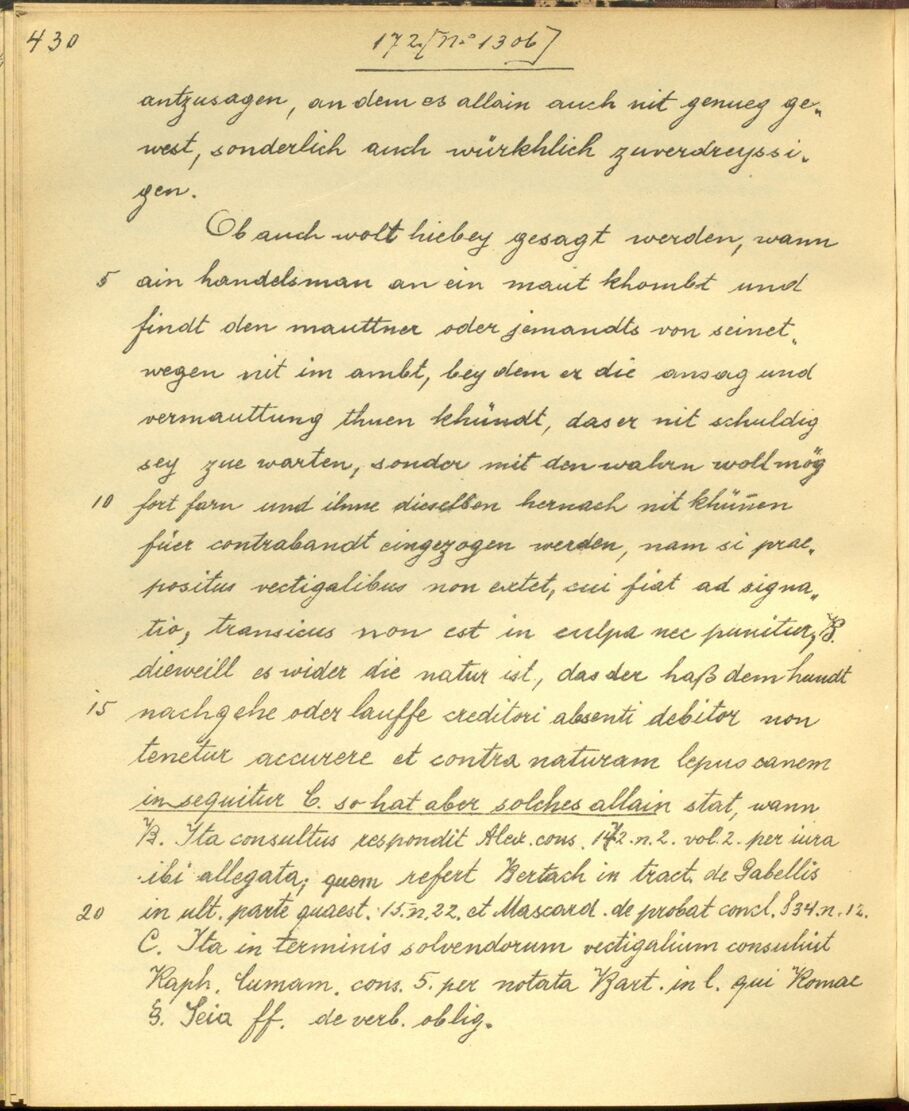 430
172 [No 1306]
antzusagen, an dem es allain auch nit genueg ge„
west, sonderlich auch würkhlich zuverdreyssi„
gen.
Ob auch wolt hiebey gesagt werden, wann
5 ain handelsman an ein maut khombt und
findt den mauttner oder jemandts von seinet„
wegen nit im ambt, bey dem er die ansag und
vermauttung thuen khündt, das er nit schuldig
sey zue warten, sonder mit den wahrn woll mög
10 fort farn und ihme dieselben hernach nit khün̄en
füer contrabandt eingezogen werden, nam si prae„
positus vectigalibus non extet, cui fiat ad signa„
tio, transicus non est in culpa nec punitur, B.
dieweill es wider die natur ist, das der haß dem hundt
15 nachgehe oder lauffe creditori absenti debitor non
tenetur accurere et contra naturam lepus canem
insequitur C. so hat aber solches allain stat, wann
B. Ita consultus respondit Alex. cons. 172. n. 2. vol. 2. per iura
ibi allegata; quem refert Bertach in tract. de Gabellis
20 in ult. parte quaest. 15. n. 22. et Mascard. de probat concl. 834. n. 12.
C. Ita in terminis solvendorum vectigalium consuluit
Raph. Cumam. cons. 5. per notata Bart. in l. qui Romae
§. Seia ff. de verb. oblig.